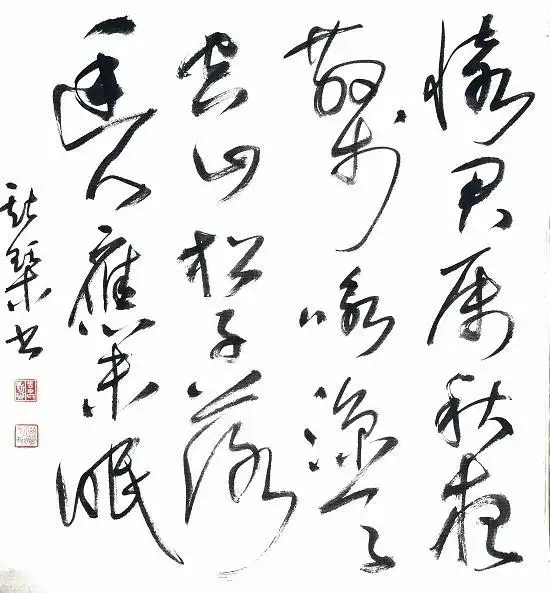 懷君属秋夜
散步咏涼天
空山松子落
幽人應未眠
书